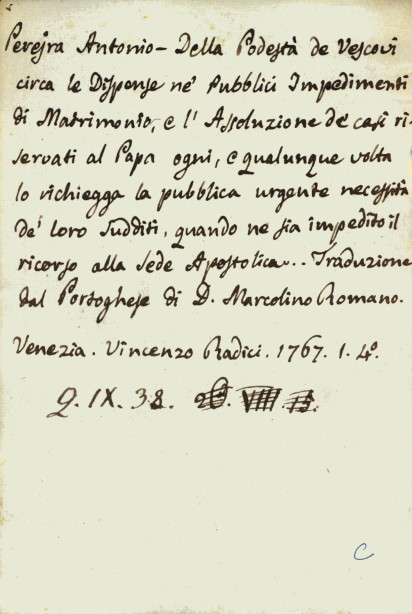 Perejra Antonio - Della Podestà de Vescovi
circa le Dispense ne' Pubblici Impedimenti
di Matrimonio, e l' Assoluzione de' casi ri-
servati al Papa ogni, e qualunque volta
lo richiegga la pubblica urgente necessità
de' loro sudditi, quando ne sia impedito il
ricorso alla Sede Apostolica... Traduzione
dal Portoghese di D. Marcolino Romano.
Venezia. Vincenzo Radici. 1767. 1. 4º.
Q. IX. 38. VIII.
C